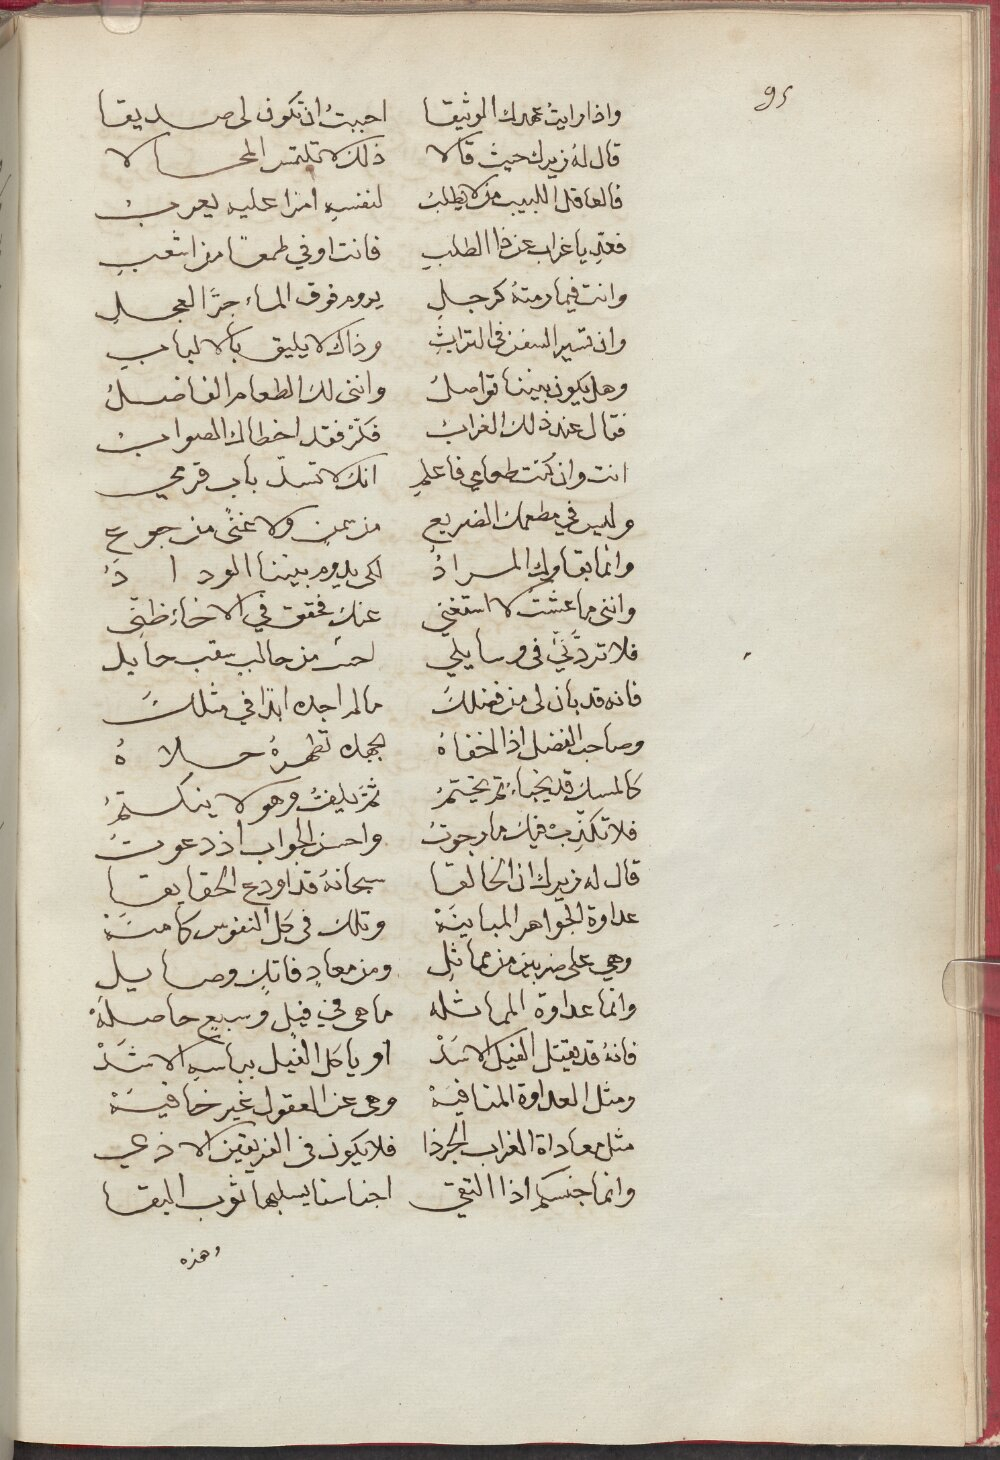 95
واذا رايتُ عهدك الوثيقا احببتُ ان تكون لى صديقا
قال لهُ زيرك حيث قالا ذلك لا تلتمس المحالا
فالعاقل اللبيب من لا يطلبُ لنفسهِ امرا عليه يعربُ
فعدِ يا غراب عن ذا الطلبِ فانت اوفي طمعًا من اشعبِ
وانت فيما رمتهُ كرجلِ يروم فوق الماء جرَّ العجلِ
وان تسير السفن فى الترابِ وذاك لا يليق بالالبابِ
وهل يكون بيننا تواصلُ واننى لك الطعام الفاضلُ
فقال عند ذلك الغرابُ فكّرْ فقد اخطاك الصوابُ
انت وان كنت طعامي فاعلمِ انك لا تسدّ باب قرمي
وليس في مطعمك الضريع من سمنٍ ولا غنًى من جوعِ
وانما بقاوك المرادُ لكى يدوم بيننا الودادُ
واننى ما عشت لا استغني عنك فحقق في الاخاءِ ظنّى
فلا تردَّنِّي فى وسايلي
فانه قد بان لى من فضلكَ ما لم اجده ابدًا في مثلكَ
وصاحب الفضل اذا اخفاهُ بجهده تظهرهُ حلاهُ
كالمسك قد يخباءُ ثم يختمُ ثمَّ يلفُ وهو لا ينكتمُ
فلا تكذِّبْ فيك ما رجوتُ واحسن الجواب اذ دعوتُ
قال له زيرك ان الخالقا سبحانهُ قد اودع الحقايقا
عداوة الجواهر المباينَةْ وتلك فى كل النفوس كامنَةْ
وهي على ضربين من مماثلِ ومن معادٍ فاتكٍ وصايلِ
وانما عداوة المماثله ما هى في فيلٍ وسبعٍ حاصلهْ
فانهُ قد يقتل الفيلَ الاسَدْ او ياكل الفيل بباسهِ الاشَدْ
ومثل العداوة المنافيَةْ وهى عن العقول غير خافيَةْ
مثل معاداة الغراب الجرذا فلا يكون فى الفريقين الاذي
وانما جنسكم اذا التقي اجناسنا يسلبها ثوب البقا
وهذه